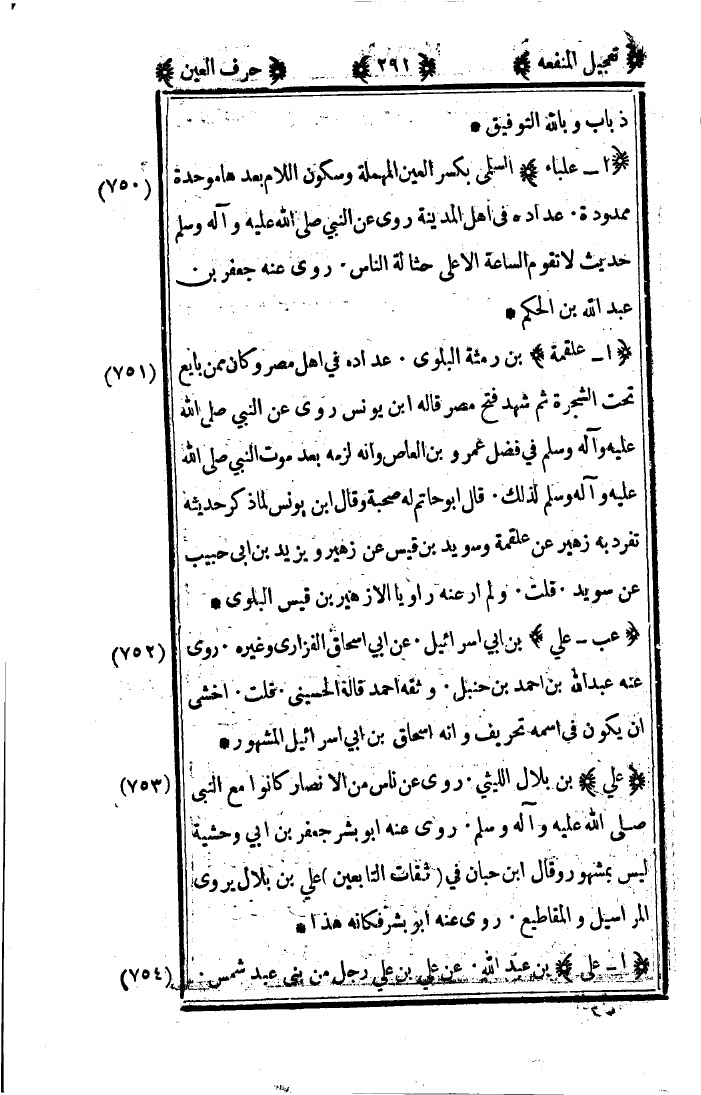 ﴿ تعجيل المنفعه ﴾ ﴿ ٢٩١ ﴾ ﴿ حرف العين ﴾
ذ باب و بالله التوفيق *
﴿ ا ــ علباء ﴾ السلمى بكسر العين المهملة وسكون اللام بعد هاموحدة (٧٥٠)
ممدودة ٠ عداده فى اهل المدينة روى عن النبي صلى الله عليه و آله وسلم
حديث لا تقوم الساعة الا على حثالة الناس ٠ روى عنه جعفر بن
عبد الله بن الحكم *
﴿ ا ــ علقمة ﴾ بن رمثة البلوى ٠ عداده في اهل مصر وكان ممن بايع (٧٥١)
تحت الشجرة ثم شهد فتح مصر قاله ابن يونس روى عن النبي صلى الله
عليه وآله وسلم في فضل عمرو بن العاص وانه لزمه بعد موت النبي صلى الله
عليه و آله وسلم لذلك ٠ قال ابو حاتم له صحبة وقال ابن يونس لماذكر حديثه
تفرد به زهير عن علقمة وسويد بن قيس عن زهير و يزيد بن ابى حبيب
عن سويد ٠ قلت ٠ ولم ار عنه راويا الا زهير بن قيس البلوى *
﴿ عب ــ علي ﴾ بن ابي اسرائيل ٠ عن ابي اسحاق الفزارى وغيره ٠ روى (٧٥٢)
عنه عبدالله بن احمد بن حنبل ٠ و ثقه احمد قاله الحسيني ٠ قلت ٠ اخشى
ان يكون في اسمه تحريف و انه اسحاق بن ابي اسرائيل المشهور *
﴿ علي ﴾ بن بلال الليثي ٠ روى عن ناس من الانصار كانوا مع النبى (٧٥٣)
صلى الله عليه و آله وسلم ٠ روى عنه ابو بشر جعفر بن ابي وحشية
ليس بمشهور وقال ابن حبان في ( ثقات التابعين ) علي بن بلال يروى
المراسيل و المقاطيع ٠ روى عنه ابو بشر فكانه هذا *
﴿ ا ــ على ﴾ بن عبد الله ٠ عن علي بن علي رجل من بنى عبد شمس ٠ (٧٥٤)